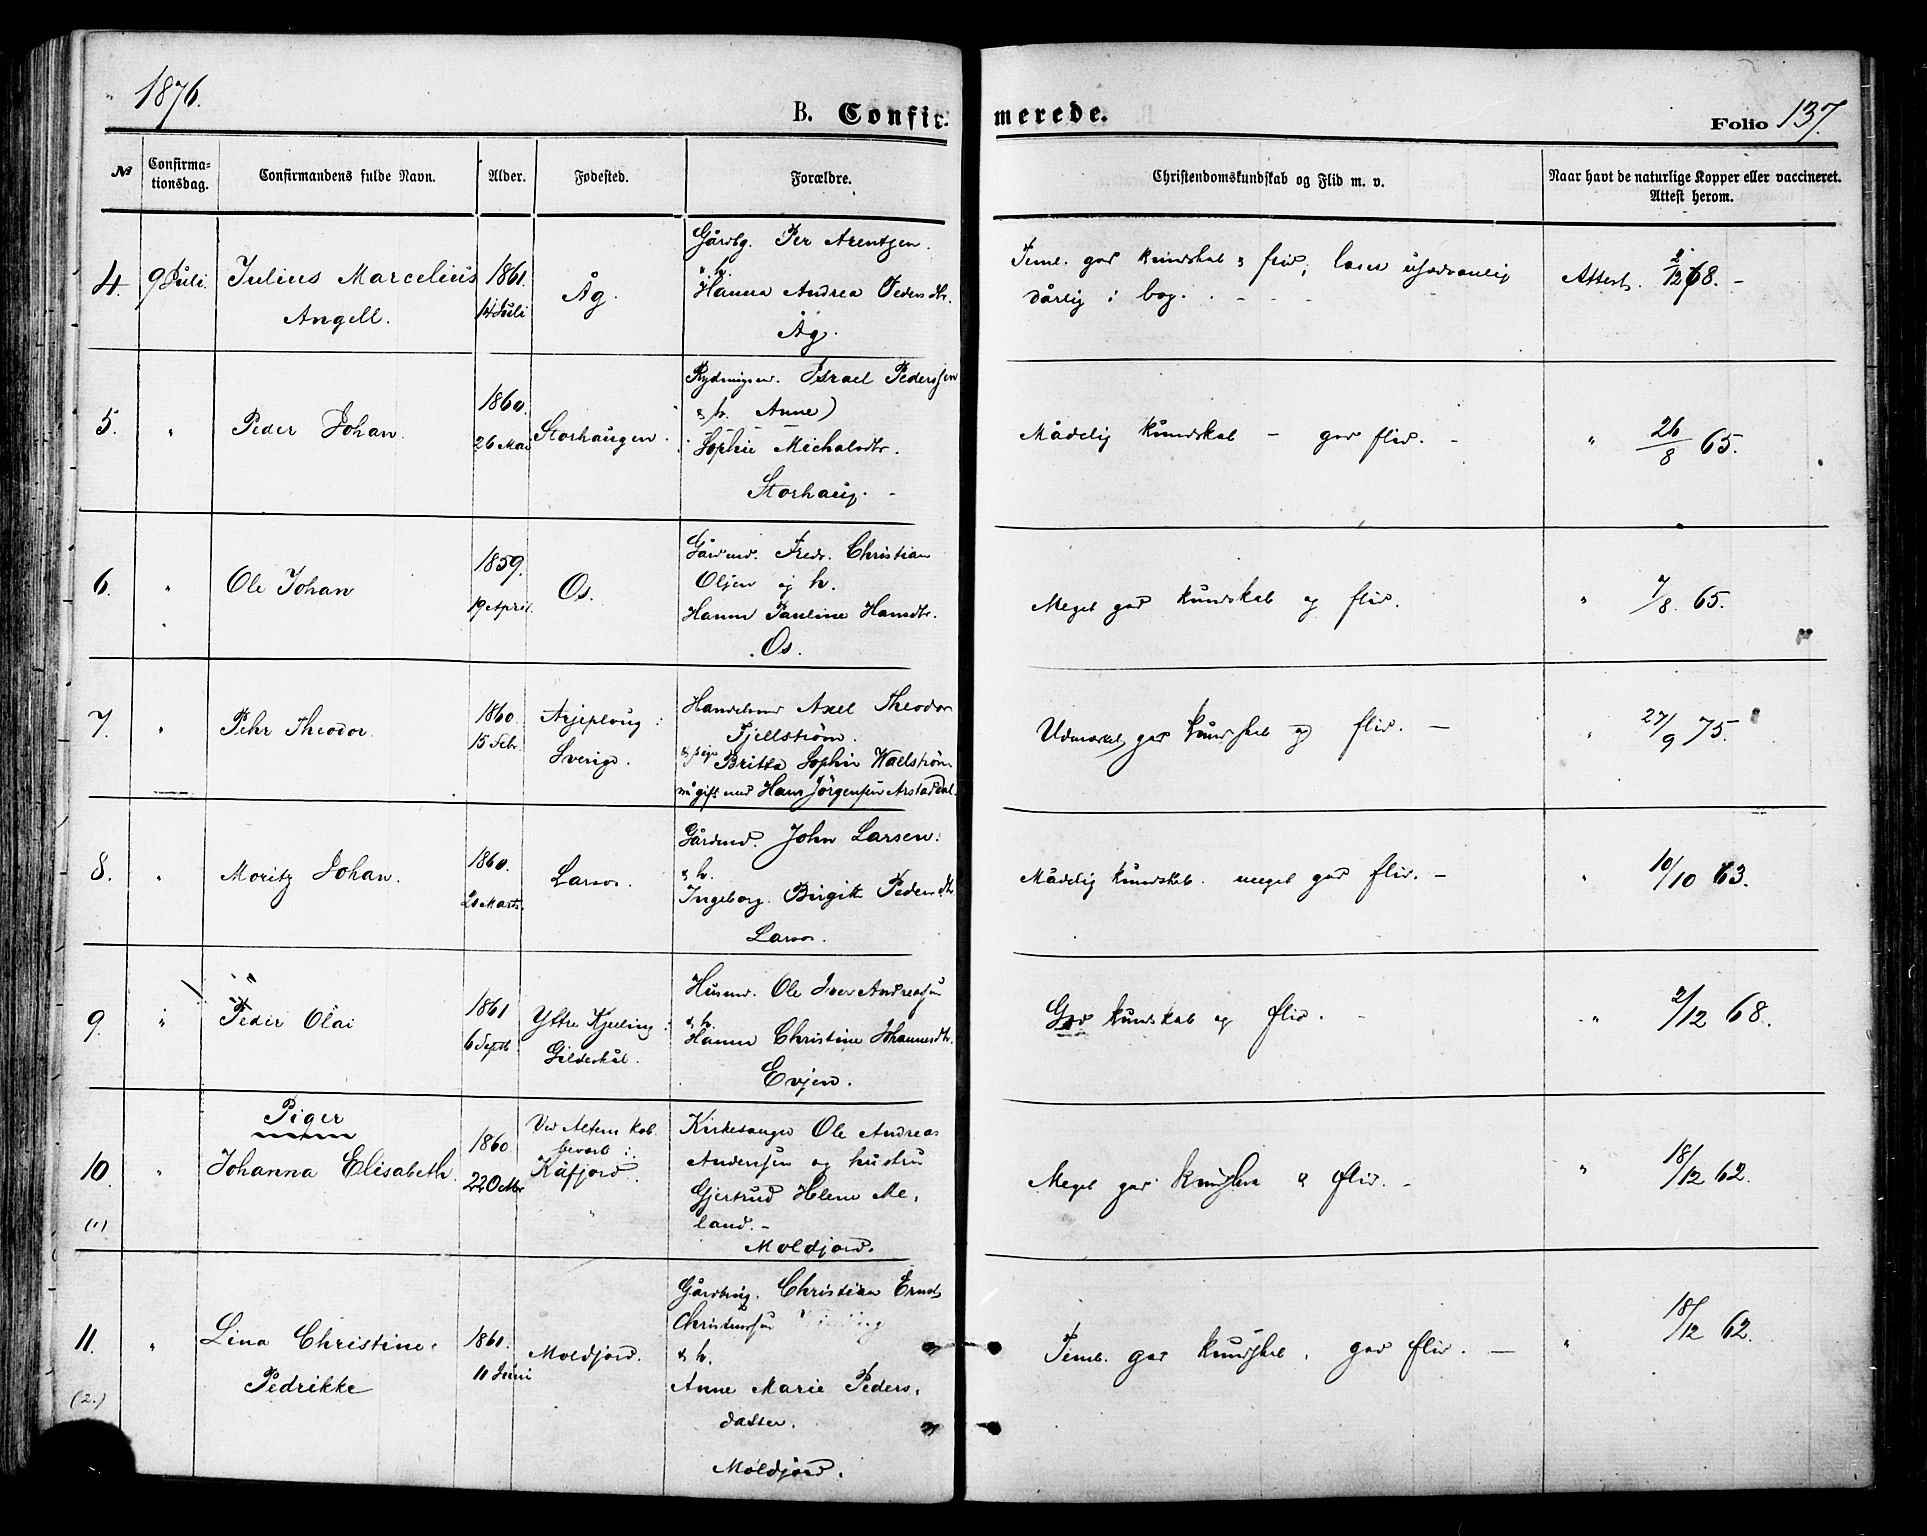 1876.
B. Confirmerede.
Folio 137.
№ Confirmationsdag. Confirmandens fulde Navn. Alder. Fødested. Forældre. Christendomskundskab og Flid m. v. Naar havt de naturlige Kopper eller vaccineret. Attest herom.
4. 9 Juli. Julius Marcelius Angell. 1861. 14 Juli Åg.
Gårdbg. Per Arentzen.
& h.
Hanna Andrea Pedersdtr.
Åg.
Teml. god kundskab & flid, læser usædvanlig
dårlig i bog.
Attest. 2/12 68. –
5. " Peder Johan. 1860. 26 Mai Storhaugen.
Rydningsm. Israel Pederssen
& h. Anne)
Sophie Michalsdtr.
Storhaug.
Mådelig kundskab – god flid. –
" 26/8 65.
6. " Ole Johan 1859. 19 April. Os.
Gårdmd. Fredr. Christian
Olsen og h.
Hanna Pauline Hansdtr.
Os.
Meget god kundskab og flid.
" 7/8. 65.
7. " Pehr Theodor. 1860. 15 Febr. Arjeploug : Sverige.
Handelsmd Axel Theodor
Fjellström.
Britta Sophie Waelström
nu gift med Hans Jörgensen Arstaddal.
Udmærket god kundskab og flid. –
" 27/9 75.
8. " Moritz Johan. 1860. Marts. Larsos.
Gårdmd. John Larsen.
& h.
Ingeborg Birgitte Pedersdtr.
Larsos.
Mådelig kundskab. meget god flid. –
" 10/10 63.
9. " Peder Olai 1861 6 Septb. Yttre Kjelling : Gildeskål.
Husmd. Ole Iver Andreassen
& h.
Hanna Christine Johannesdtr.
Evjen.
God kundskab og flid.
" 2/12 68.
Piger
10. (1) " Johanna Elisabeth. 1860 22 Oktbr Ved Altens Kob.
Kåfjord.
Kirkesanger Ole Andreas
Anderssen og hustru
Gjertrud Helene Me-
land. –
Moldjord.
Meget god kundskab & flid. –
" 18/12 62.
11. (2.) " Lina Christine Pedrikke 1861. 11 Juni Moldjord.
Gårdbrug. Christian Ernst
Christenssen
& h.
Anne Marie Peders-
datter.
Moldjord.
Teml. god kundskab, god flid. –
" 18/12 62.